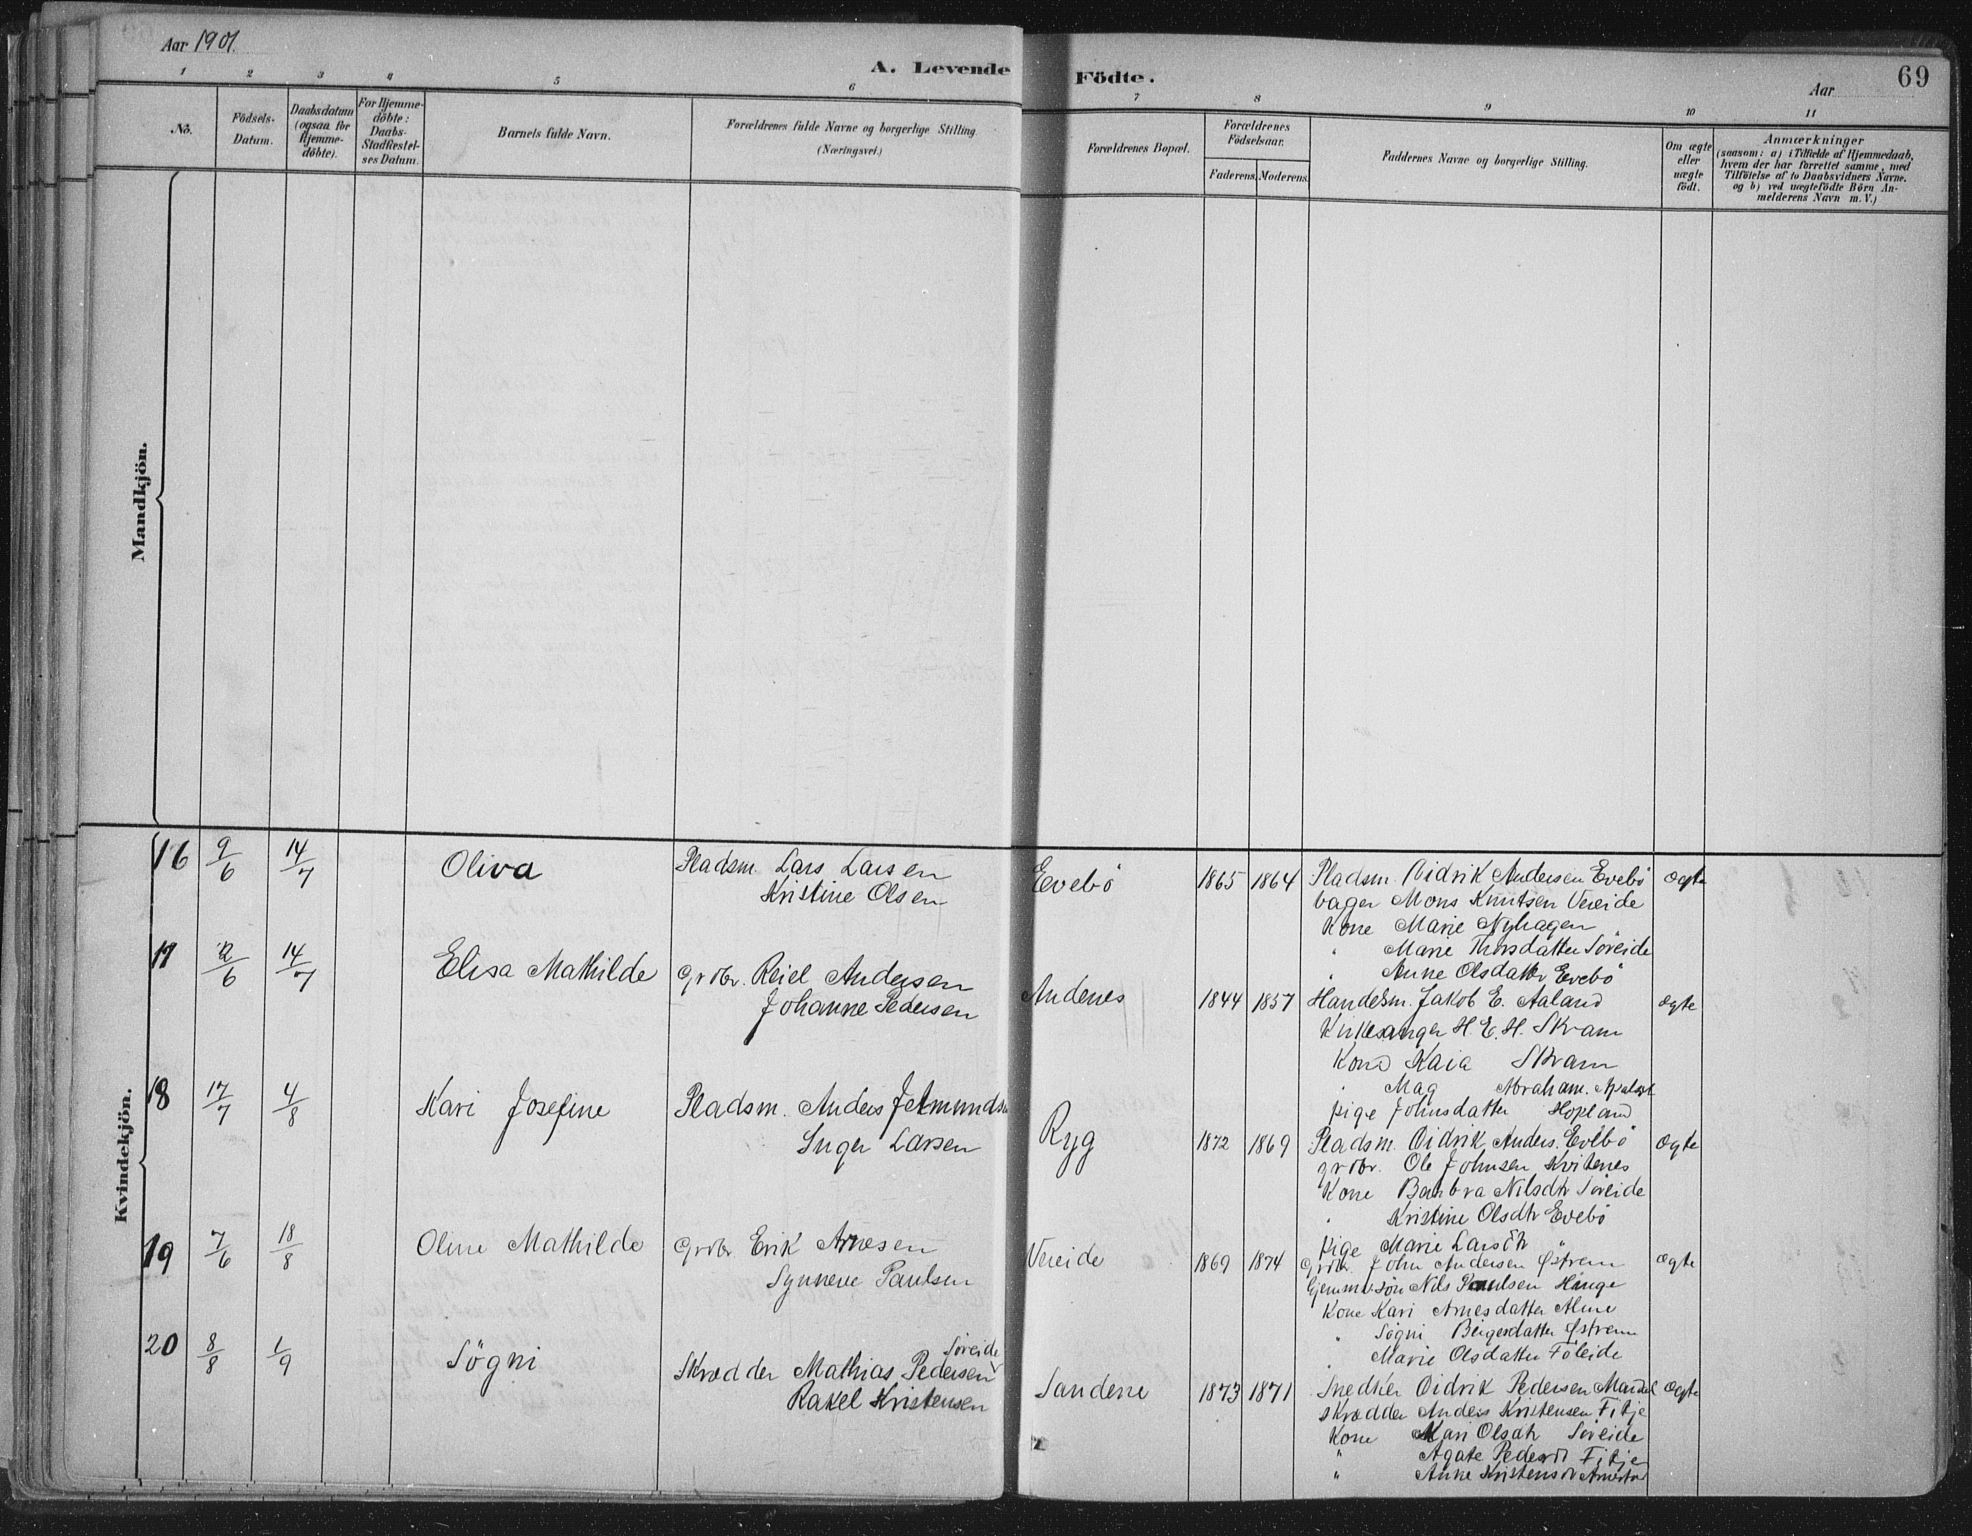 Aar 1901.
A. Levende Födte.
Aar
69
1 2 3 4 5 6 7 8 9 10 11
No.
Födsels-Datum.
Daabsdatum (ogsaa for Hjemme-döbte).
For Hjemme-döbte: Daabs-Stadfæstel-ses Datum.
Barnets fulde Navn.
Forældrenes fulde Navne og borgerlige Stilling.
(Næringsvei.)
Forældrenes Bopæl.
Forældrenes Födselsaar.
Faderens. Moderens.
Faddernes Navne og borgerlige Stilling.
Om ægte eller uægte födt.
Anmærkninger
(saasom: a) i Tilfælde af Hjemmedaab,
hvem der har forrettet samme, med
Tilföielse af to Daabsvidners Navne.
og b) ved uægtefödte Börn An-
melderens Navn m. V.)
Mandkjön.
Kvindekjön.
16 9/6 14/7 Oliva Pladsm. Lars Larsen
Kristine Olsen
Evebö 1865 1864 Pladsm. Didrik Andersen Evebö ægte
bager Mons Knutsen Vereide
Kone Marie Nyhagen
" Marie Thorsdatter Søreide
" Anne Olsdattr Evebö
17 2/6 14/7 Elisa Mathilde Grdbr. Reiel Andersen
Johanne Pedersen
Andenes 1844 1857 Handelsm. Jakob E. Aaland ægte
Kirkesanger H. E. H. Skram
Kone Kaia Skram
" Mag Abraham.
pige Johnsdatter Hopland
18 17/7 4/8 Kari Josefine Pladsm. Anders
Inger Larsen
Ryg 1872 1869 Pladsm. Didrik Anders. Evebö ægte
grdbr. Ole Johnsen Kvitenes
Kone Barbra Nilsdtr Søreide
" Kristine Olsdtr Evebö
pige Marie Larsdtr "
19 7/6 18/8 Oline Mathilde Grdbr Erik Arnesen
Synneve Paulsen
Vereide 1869 1874 Grdbr. John Andersen Østrem ægte
Gjermundsön Nils Paulsen Hauge
Kone Kari Arnesdatter Alme
" Søgni Beigesdatter Østrem
" Marie Olsdatter Föleide
20 8/8 1/9 Sögni Skrædder Mathias Pedersen Søreide
Rakel Kristensen
Sandene 1873 1871 Snedker Didrik Pedersen Mardal ægte
skrædder Anders Kristensen Fitje
Kone Mari Olsdtr Søreide
" Agate Pedersdt Fitje
" Anne Kristensdt